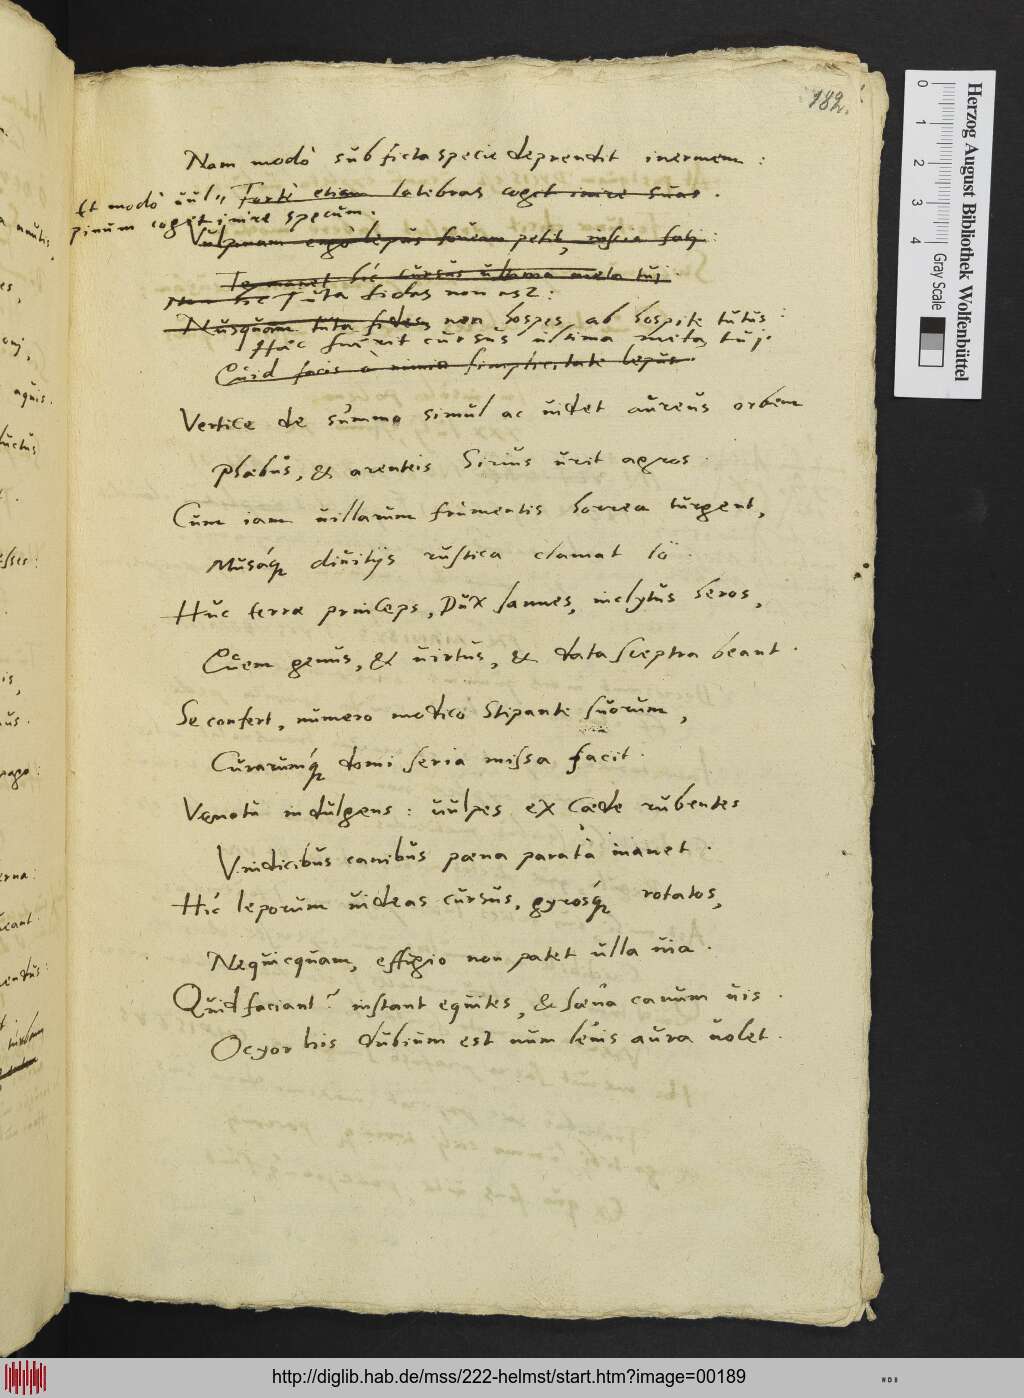 182.
Nam modò sub ficta specie deprendit inermem :
Et modò uul„ Fortè etiam latebras cogit inire suas .
pinum cogit inire specum .
Vulpinam ergo lepus foueam petit, inscia fati :
Te manet hîc cursus ultima meta tui .
Non hîc Tuta fides non est :
Nusquam tuta fides, non hospes ab hospite tutus :
Hæc fuerit cursus ultima meta tui .
Quid facis ò nimia simplicitate lepus
Vertice de summo simul ac uidet aureus orbem
Phœbus, & arenteis Sirius urit agros .
Cum iam uillarum frumentis horrea turgent,
Musáq; diuitijs rustica clamat Iö .
Huc terræ princeps, Dux Iannes, inclytus heros,
Quem genus, & uirtus, & data sceptra beant .
Se confert, numero modico stipante suorum,
Curarumq́; domi seria missa facit .
Venatu indulgens : uulpes ex cæde rubentes
Vindicibus canibus pœna parata manet .
Hîc leporum uideas cursus, gyrosq́; rotatos,
Nequicquam, effugio non patet ulla uia .
Quid faciant ? instant equites, & sæua canum uis .
Ocyor his dubium est num leuis aura uolet .
Herzog August Bibliothek Wolfenbüttel
0 1 2 3 4
Gray Scale
http://diglib.hab.de/mss/222-helmst/start.htm?image=00189